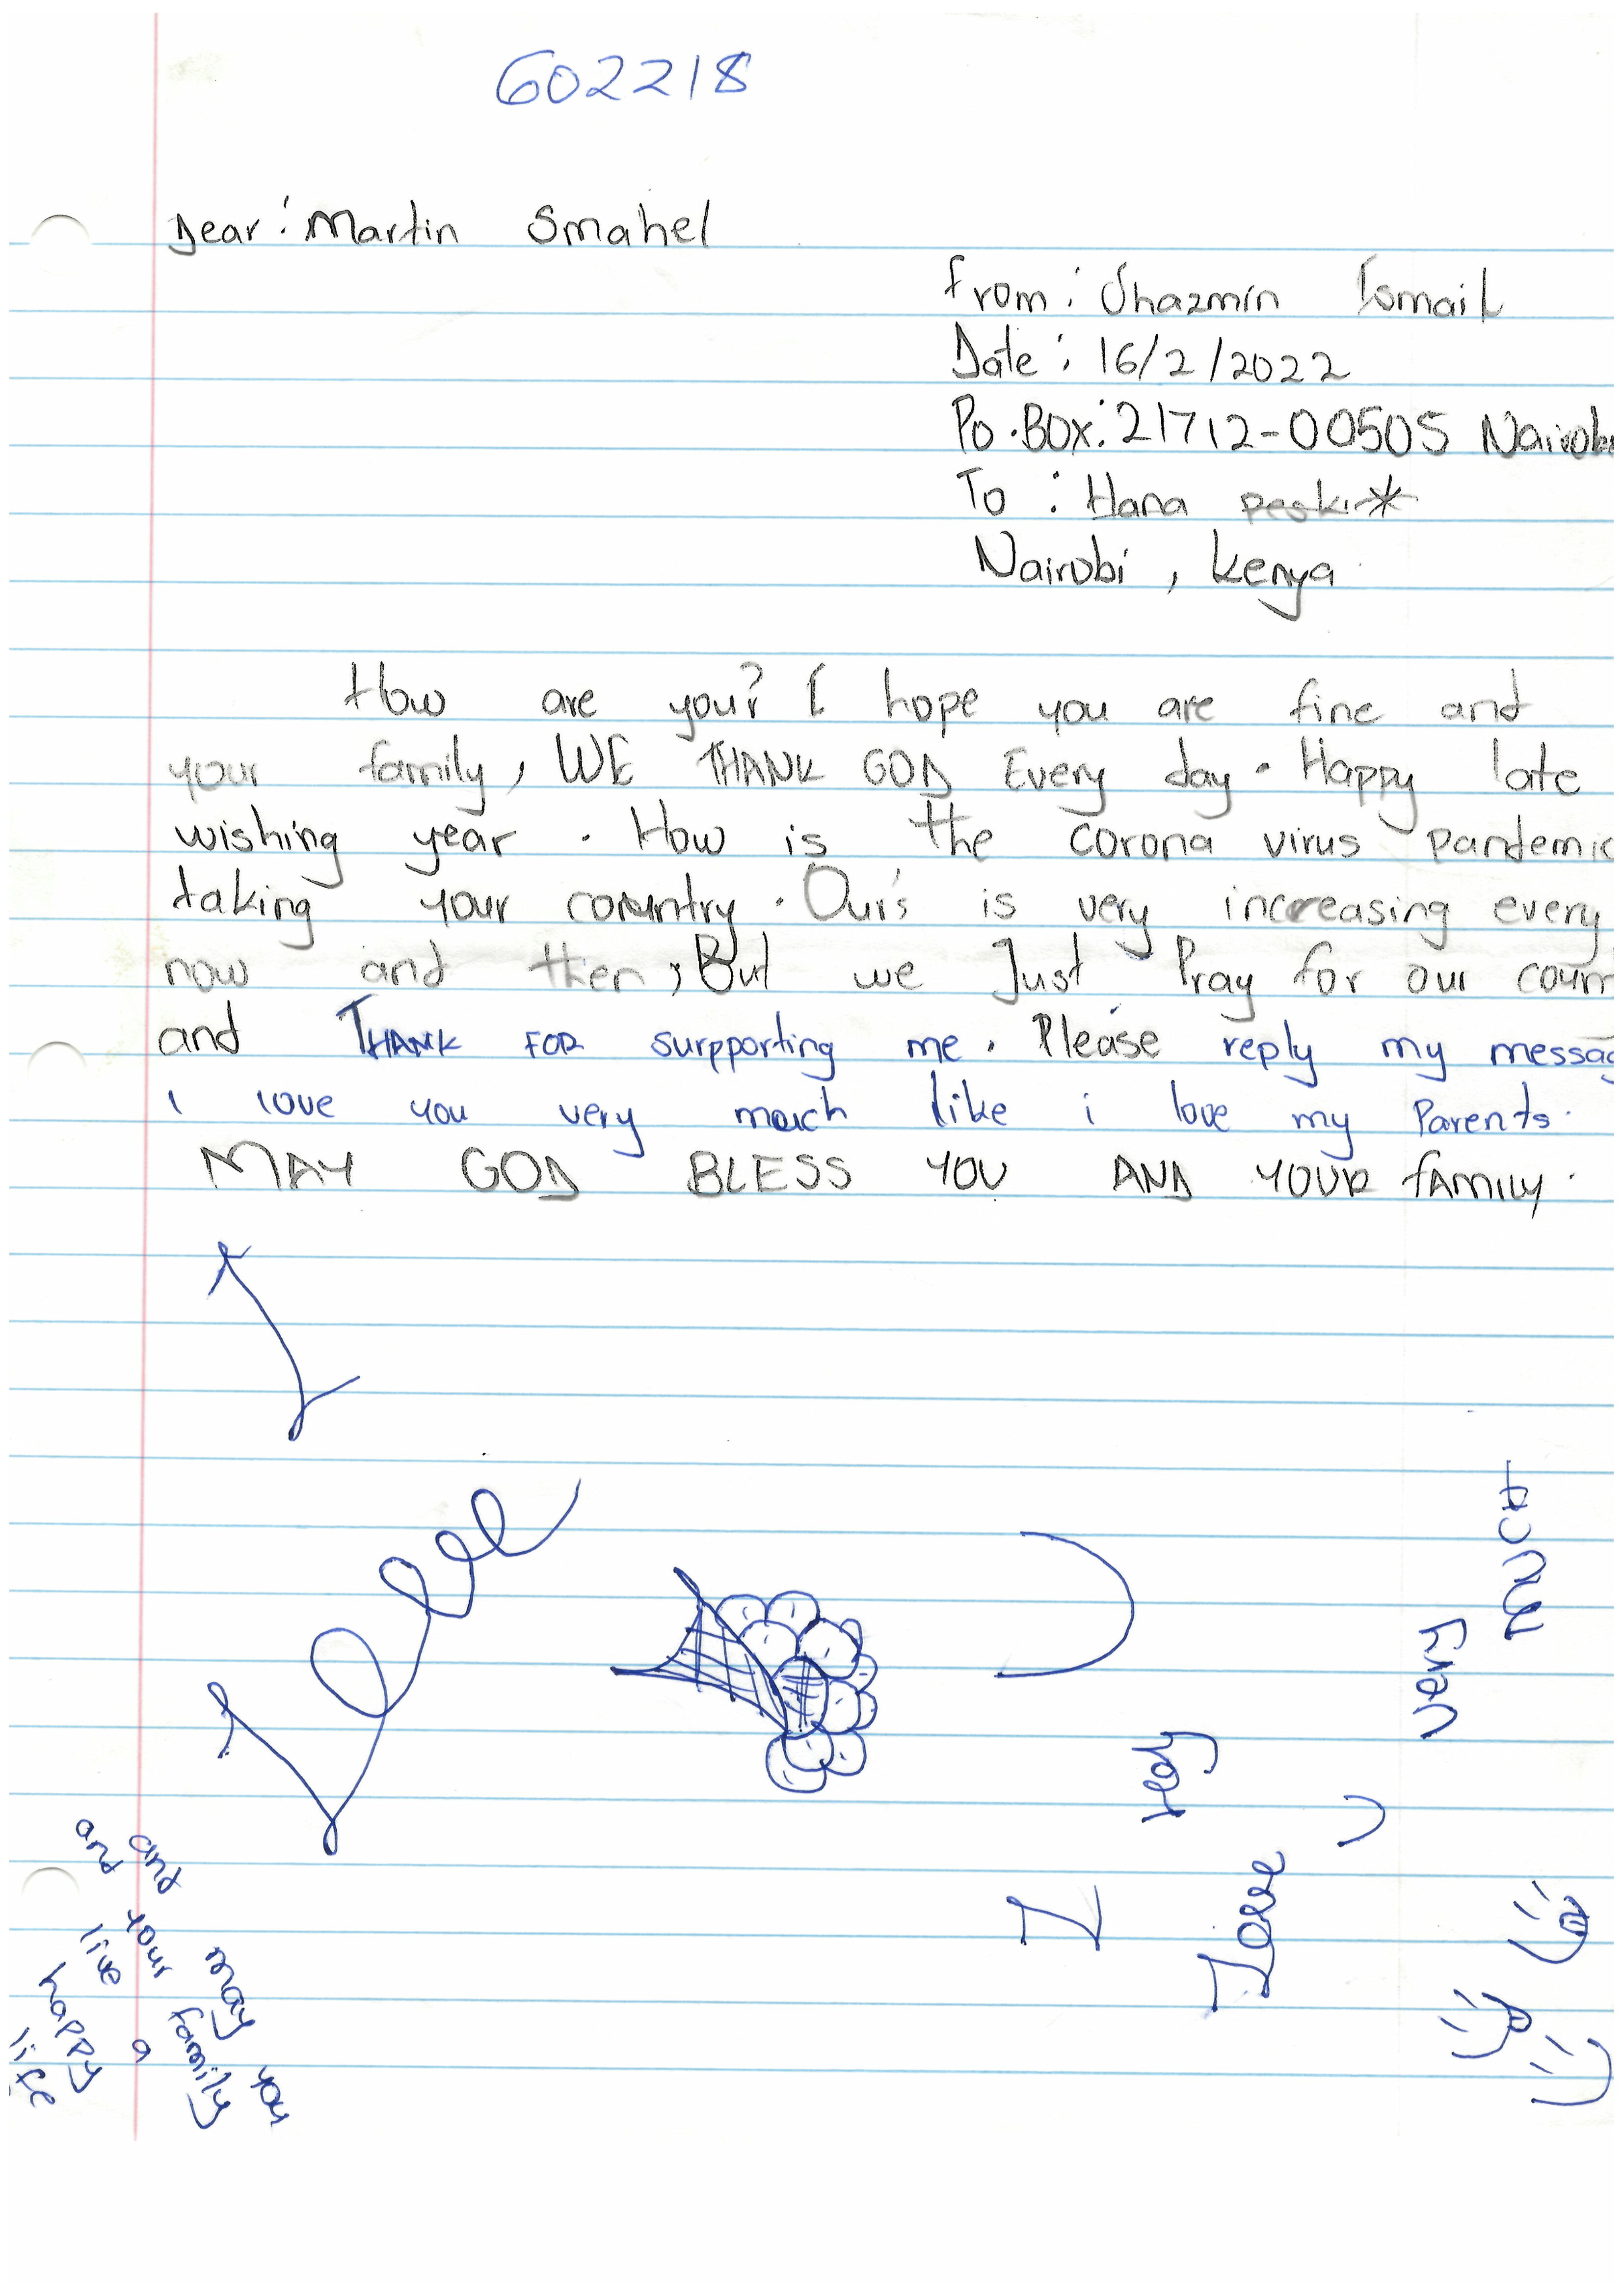 602218
Dear: Martin Smahel
From: Shazmin Ismail
Date: 16/2/2022
Po.Box: 21712-00505 Nairobi
To: Hana
Nairobi, kenya
How are your? I hope you are fine and
your family, WE THANK GOD Every day. Happy late
wishing year. How is the corona virus pandemic
taking your country. Our's is very increasing every
now and then, But we Just Pray for our coun
and THANK FOR surpporting me. Please reply my messag
i love you very much like i love my Parents.
MAY GOD BLESS YOU AND YOUR fAMILY.
I
I
love
very
MUCH
may you
and your family
and live a
happy
life